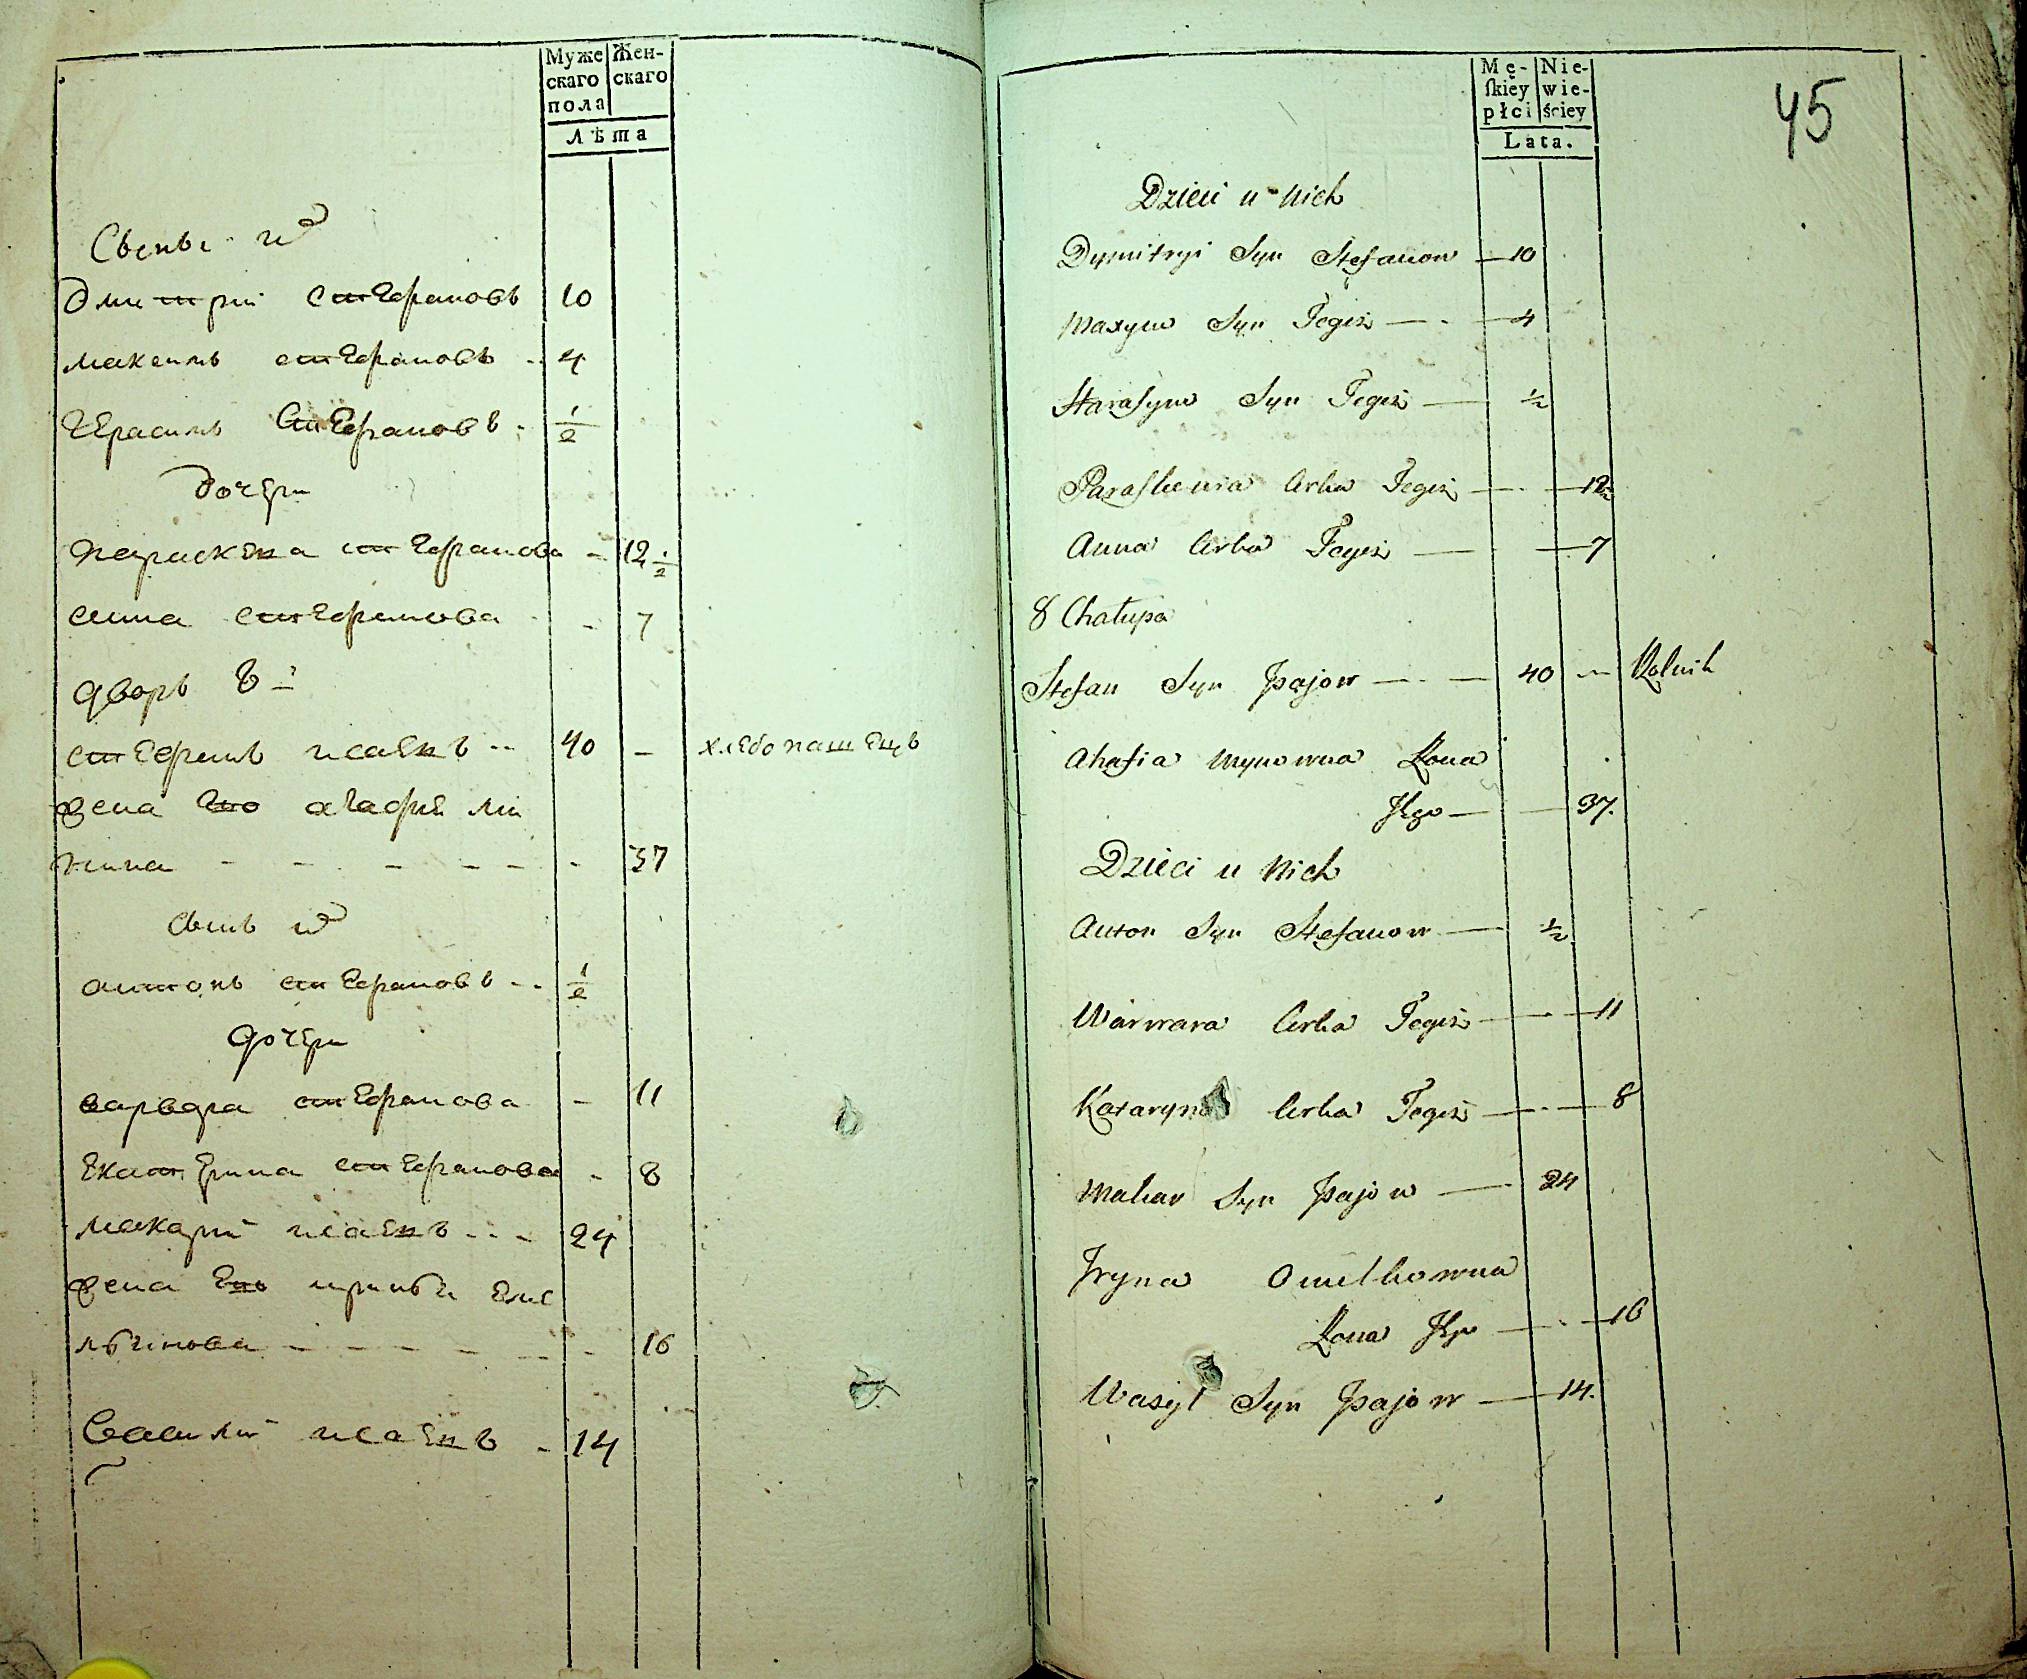 Муже
скаго
пола
Жен-
скаго
Лѣта
Сыны и
Дмитрій Стефановъ 10
Максимъ Стефановъ .. 4
Герасимъ Стефановъ . 1/2
дочери
Параскева Стефанова - 12 1/2
Анна Стефанова - 7
дворъ 8 й
Стефанъ исаевъ .. 40 - хлебопашецъ
жена Его агафия ми
нина - - - - - - - 37
Сынъ и
антонъ Стефановъ .. 1/2
дочери
варвара Стефанова - 11
Екатерина Стефанова - 8
Макарий исаевъ - - - 24
жена Его Еме
льянова - - - - - - 16
Василий исаевъ - 14
Mę-
ſkiey
płci
Nie-
wie-
ściey
Lata.
45
Dzieci u Nich
Dymitryi Syn Stefanow — 10
Maxym Syn Tegiż — . — 4
Harasym Syn Tegiż — 1/2
Paraskewia Corka Tegiż — . — 12 1/2
Anna Corka Tegiż — — 7
8 Chałupa
Stefan Syn Jsajow — . — 40 — Rolnik
Ahafia Mynowna Żona
Jego — — 37.
Dzieci u Nich
Anton Syn Stefanow — 1/2
Warwara Corka Tegiż — . — 11
Kataryna Corka Tegiż — . — 8
Makar Syn Jsajow — 24
Jryna Omelkowna
Żona Jego — . — 16
Wasyl Syn Jsajow — 14.